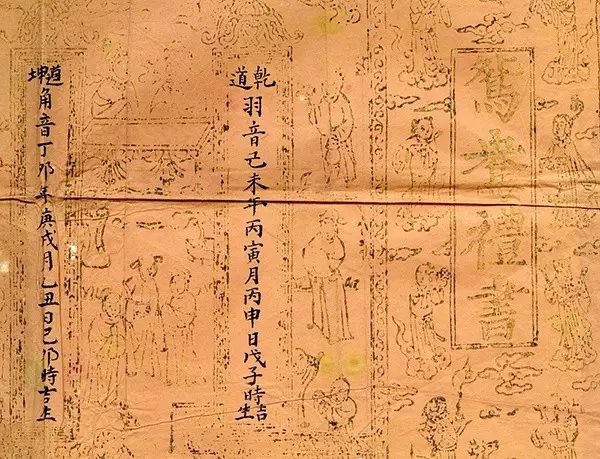 鴛鴦禮書
乾道羽音己未年丙寅月丙申日戊子時吉生
坤道角音丁卯年庚戌月乙丑日己卯時吉生